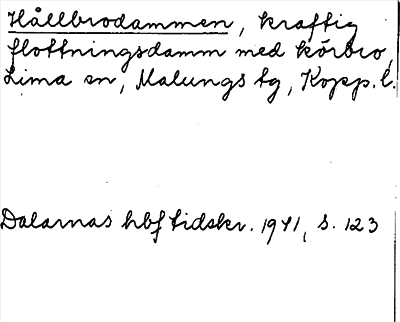 Hållbrodammen, kraftig
flottningsdamm med körbro,
Lima sn, Malungs tg, Kopp. l.
Dalarnas hbf tidskr. 1941, s. 123